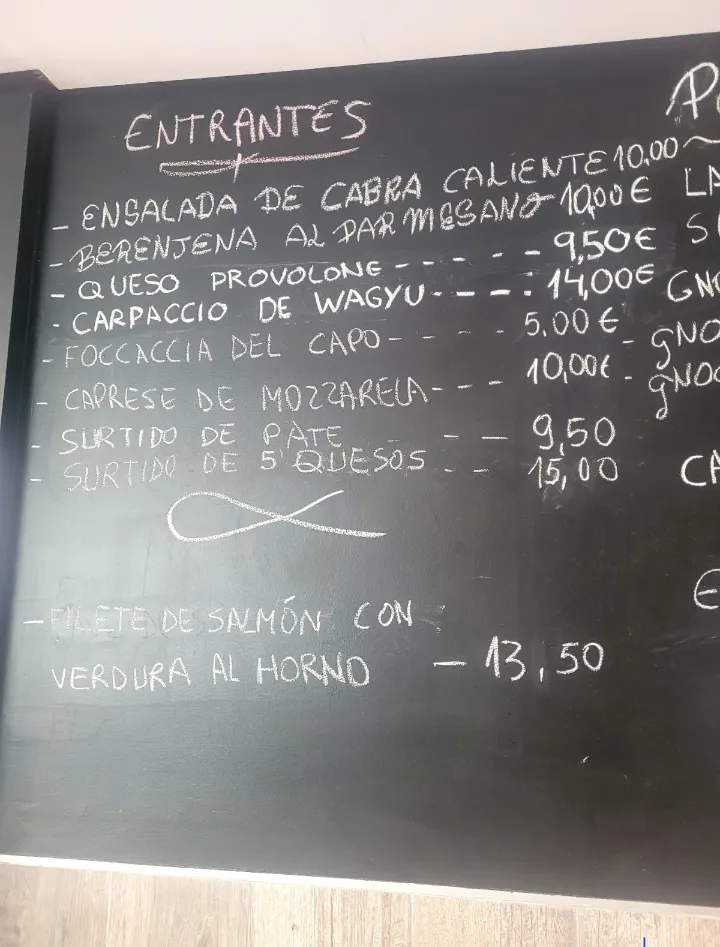 ENTRANTES
- ENSALADA DE CABRA CALIENTE 10,00
- BERENJENA AL PARMESANO - 10,00€
- QUESO PROVOLONE - - - - - - 9,50€
- CARPACCIO DE WAGYU - - - - 14,00€
- FOCCACCIA DEL CAPO - - - - 5,00€
- CAPRESE DE MOZZARELA - - - 10,00€
- SURTIDO DE PATE - - 9,50
- SURTIDO DE 5 QUESOS - - 15,00
- FILETE DE SALMÓN CON
VERDURA AL HORNO - 13,50
P
LA
S
GNO
- gNO
- gNO
CA
E